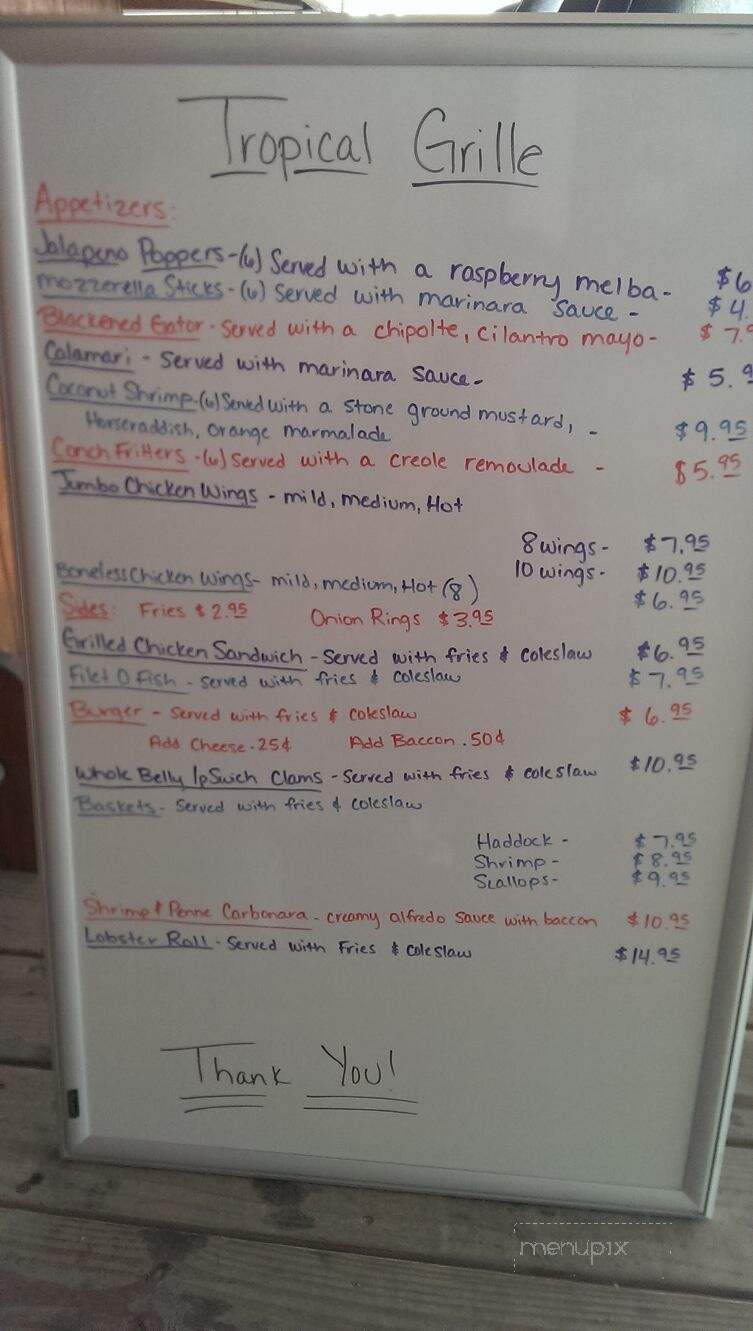 Tropical Grille
Appetizers:
Jalapeno Poppers-(6) Served with a raspberry melba- $6
mozzerella Sticks-(6) Served with marinara sauce - $4.
Blackened Gator - Served with a chipolte, cilantro mayo- $7.9
Calamari - Served with marinara Sauce- $5.9
Coconut Shrimp-(6) Served with a stone ground mustard, - $9.95
Horseraddish, orange marmalade
Conch Fritters -(6) Served with a creole remoulade - $5.95
Jumbo Chicken Wings - mild, medium, Hot
8 wings- $7.95
10 wings- $10.95
Boneless Chicken Wings- mild, medium, Hot (8) $6.95
Sides: Fries $2.95 Onion Rings $3.95
Grilled Chicken Sandwich - Served with fries & coleslaw $6.95
Filet O Fish - served with fries & coleslaw $7.95
Burger - Served with fries & coleslaw $6.95
Add Cheese .25¢ Add Baccon .50¢
Whole Belly IpSwich Clams - Served with fries & coleslaw $10.95
Baskets - Served with fries & coleslaw
Haddock - $7.95
Shrimp - $8.95
Scallops- $9.95
Shrimp & Penne Carbonara - creamy alfredo sauce with baccon $10.95
Lobster Roll - Served with Fries & coleslaw $14.95
Thank You!
menupix